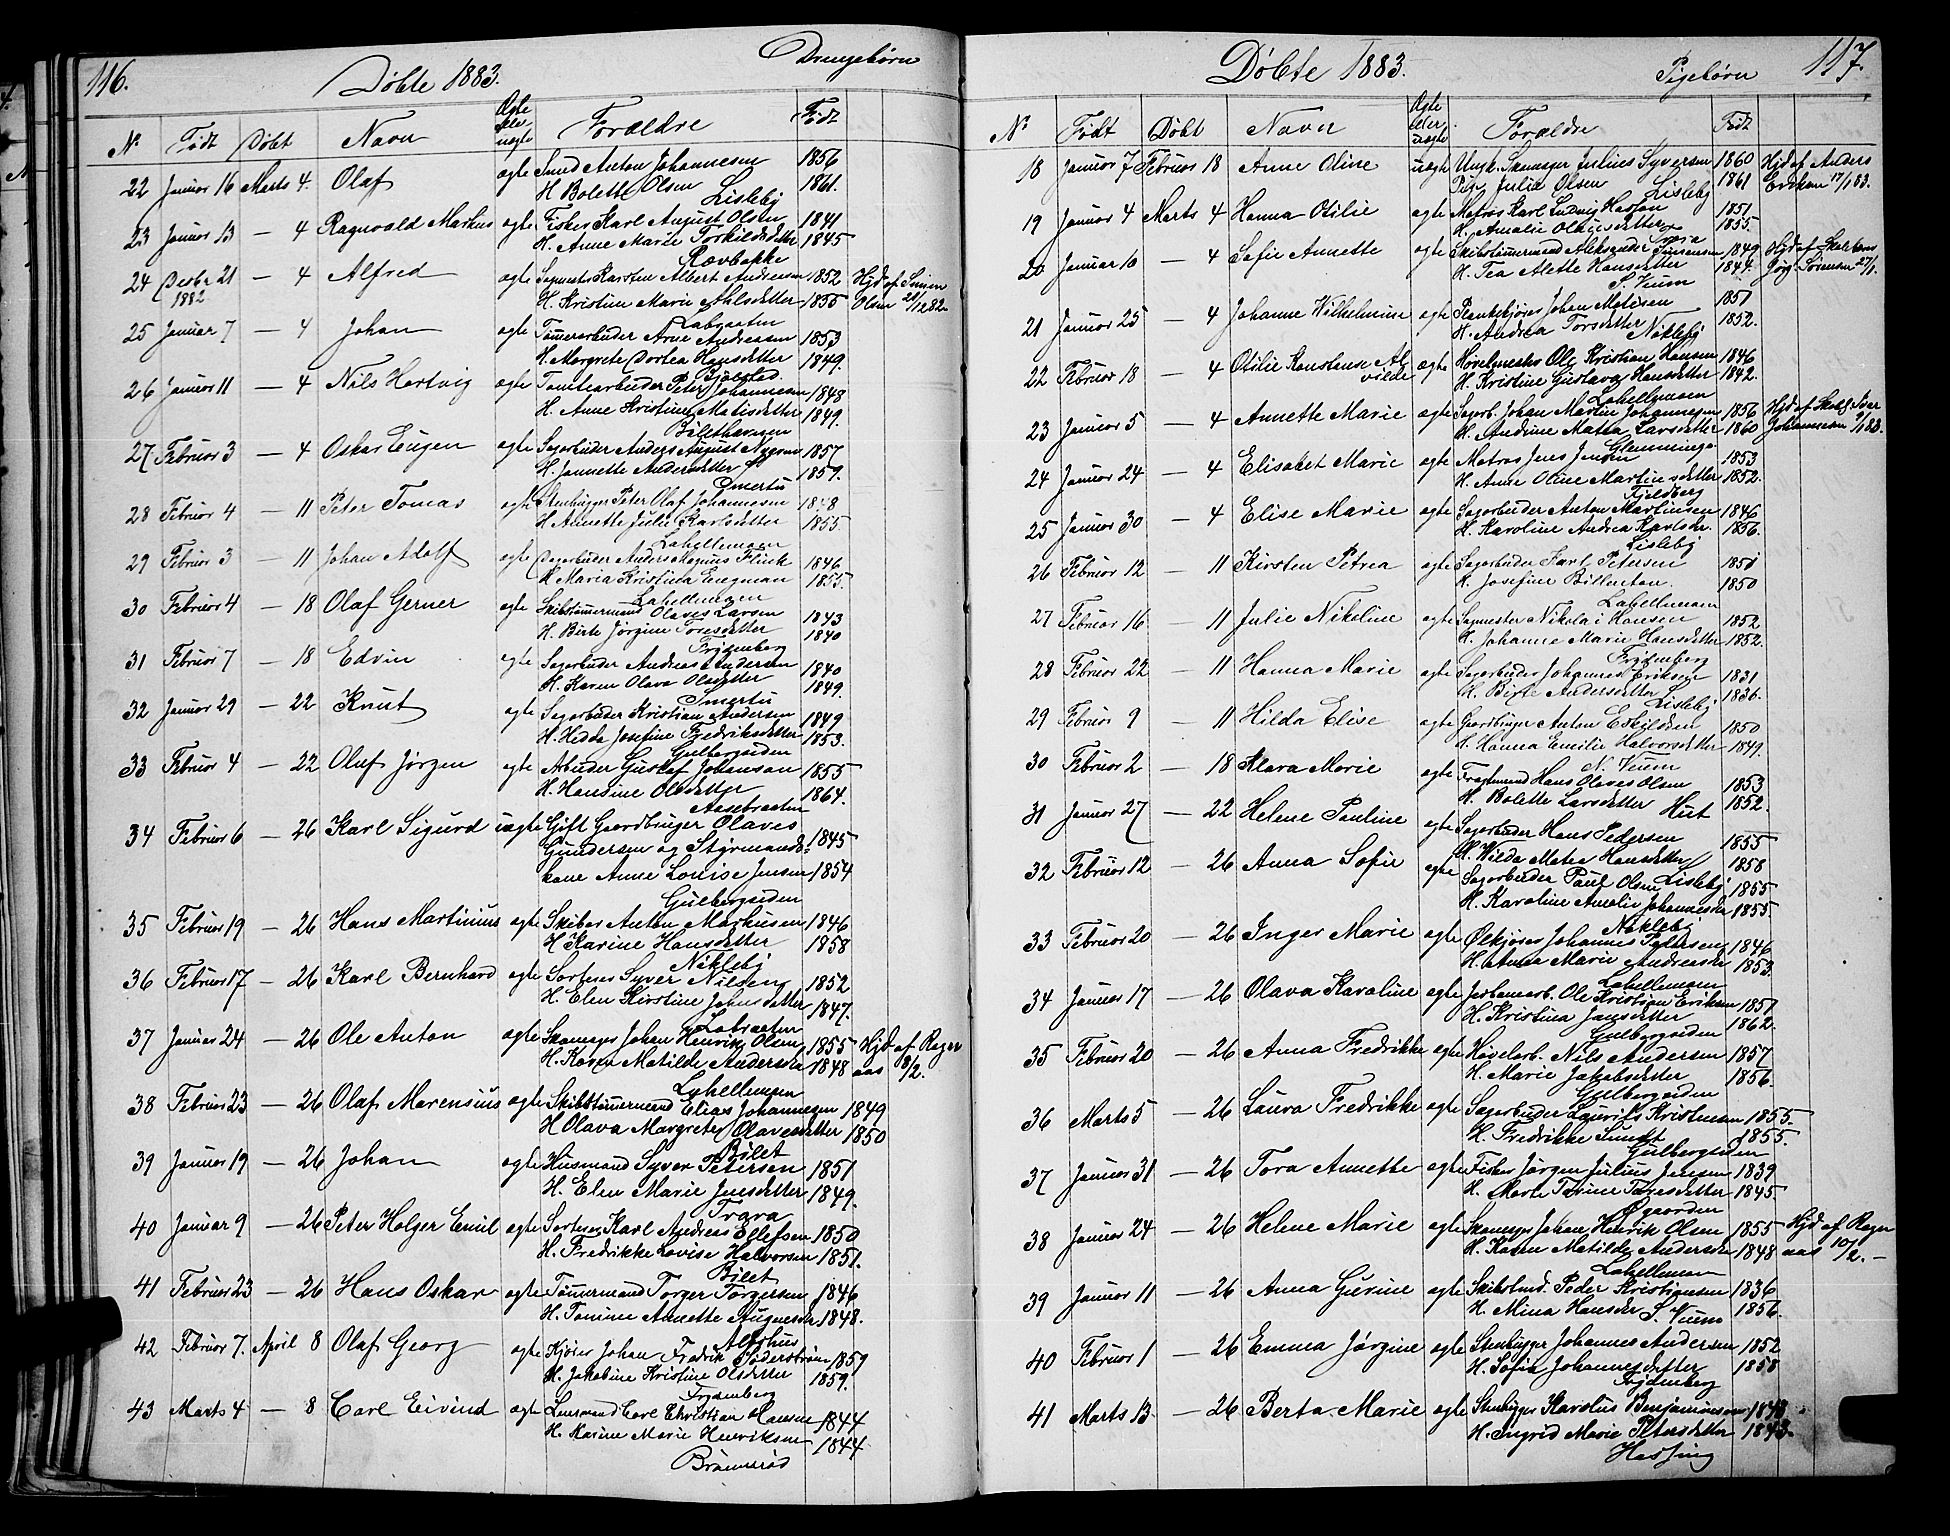 116. Døbte 1883. Drengebørn
No Født Døbt Navn Ægte eller uægte Forældre Født
22 Januar 16 Marts 4. Olaf ægte Smed Anton Johannesen 1856
H. Bolette Olsen 1861.
Lisleby
23 Januar 13 — 4 Ragnvald Markus ægte Fisker Karl August Olsen 1841
H. Anne Marie Torkildsdatter 1845
Rævbakke
24 Desbr 21 — 4 Alfred ægte Sagmester Karsten Albert Andersen 1852 Hjd af Simen
1882 H. Kristine Marie Ahlsdatter 1855 Olsen 21/12 82.
Labraaten
25 Januar 7 — 4 Johan ægte Tømmerarbeider Arne Andreasen 1853
H. Margrete Dortea Hansdatter 1849.
Bjølstad
26 Januar 11 — 4 Nils Hartvig ægte Tomtearbeider Peter Johannesen 1848
H. Anne Kristine Matisdatter 1849.
27 Februar 3 — 4 Oskar Eugen ægte Sagarbeider Anders August Nygren 1857
H. Jannette Andersdatter 1859.
Smertu
28 Februar 4 — 11 Peter Tomas ægte Stenhugger Peter Olaf Johannesen 1858
H. Annette Julie Karlsdatter 1855
Lahellemoen
29 Februar 3 — 11 Johan Adolf ægte Sagarbeider Anders Magnus Flink 1846
H. Maria Kristina Engman 1855.
Lahellemoen
30 Februar 4 — 18 Olaf Gerner ægte Skibstømermand Olaves Larsen 1843
H. Birte Jørgine Toresdatter 1840
Frydenberg
31 Februar 7 — 18 Edvin ægte Sagarbeider Andreas Andersen 1840
H. Karen Olava Olsdatter 1849.
Smertu
32 Januar 29 — 22 Knut ægte Sagarbeider Kristian Andersen 1849
H. Hedda Josefine Fredriksdatter 1853.
Gulbergsiden
33 Februar 4 — 22 Oluf Jørgen ægte Arbeider Gustaf Johansson 1855
H. Hansine Olsdatter 1864.
Aasebraaten
34 Februar 6 — 26 Karl Sigurd uægte Gift Gaardbruger Olaves
Gundersen og Styrmands- 1845
kone Anne Louise Jensen 1854
Gulbergsiden
35 Februar 19 — 26 Hans Martinius ægte Skibas Anton Markusen 1846
H. Karine Hansdatter 1858
Nøkleby
36 Februar 17 — 26 Karl Bernhard ægte Sorterer Syver Nilsen 1852
H. Elen Kirstine Johnsdatter 1847.
Labraaten
37 Januar 24 — 26 Ole Anton ægte Skomager Johan Henrik Olsen 1855 Hjd af Rogn
H. Karen Matilde Andersdr. 1848 aas 10/2.
Lahellemoen
38 Februar 23 — 26 Olaf Marensius ægte Skibstømermand Elias Johannesen 1849
H. Olava Margrete Olavesdatter 1850
Bilet
39 Januar 19 — 26 Johan ægte Husmand Syver Petersen 1851
H. Elen Marie Jensdatter 1849.
Trara
40 Januar 9 — 26 Peter Holger Emil ægte Sorterer Karl Andreas Ellefsen 1850
H. Fredrikke Lovise Halvorsen 1851.
Bilet
41 Februar 23 — 26 Hans Oskar ægte Tømmermand Torger Torgersen 1846
H. Tomine Annette Augnesdr 1848.
42 Februar 7. April 8 Olaf Georg ægte Kjører Johan Fredrik Søderstrøm 1859
H. Jakobine Kristine Olsdatter 1859.
Frydenberg
43 Marts 4 — 8 Carl Eivind ægte Lensmand Carl Christian Hansen 1844
H. Karine Marie Henriksen 1844

Døbte 1883. Pigebørn 117.
No Født Døbt Navn Ægte eller uægte Forældre Født
18 Januar 7 Februar 18 Anne Oline uægte Ungk. Skomager Julius Syversen 1860 Hjd af Anders
Pige Julie Olsen 1861 Eriksen 17/1 83.
Lisleby
19 Januar 4 Marts 4 Hanna Otilie ægte Matros Karl Ludvig Hansen 1851
H. Amalie Olavesdatter 1855.
20 Januar 10 — 4 Sofie Annette ægte Skibstømmermand Aleksander Jørgensen 1849 Hjd af Skoleh.
H. Tea Alette Hansdatter 1844. Jørg. Sørensen 27/1.
S. Veum
21 Januar 25 — 4 Johanne Wilhelmine ægte Plankekjører Johan Matisen 1851
H. Andrea Torsdatter 1852.
Nøkleby
22 Februar 18 — 4 Otilie Konstanse Al ægte Høvelmester Ole Kristian Hansen 1846
vilde H. Kristine Gustava Hansdatter 1842.
Lahellemoen
23 Januar 5 — 4 Annette Marie ægte Sagarb. Johan Martin Johannesen 1856 Hjd af Skolh. Iver
H. Andrine Matea Larsdatter 1860 Johannesen 9/1 83.
Glemminge
24 Januar 24 — 4 Elisabet Marie ægte Matros Jens Jensen 1853
H. Anne Oline Martinsdatter 1852.
Fjeldberg
25 Januar 30 — 4 Elise Marie ægte Sagarbeider Anton Martinsen 1846
H. Karoline Andrea Karlsdr. 1856.
Lisleby
26 Februar 12 — 11 Kirsten Petrea ægte Sagarbeider Karl Petersen 1851
H. Josefine Billenton. 1850
Lahellemoen
27 Februar 16 — 11 Julie Nikoline ægte Sagmester Nikolai Hansen 1852
H. Johanne Marie Hansdatter 1852.
Frydenberg
28 Februar 22 — 11 Hanna Marie ægte Sagarbeider Johannes Eriksen 1831
H. Birte Andersdatter 1836.
Lisleby
29 Februar 9 — 11 Hilda Elise ægte Gaardbruger Anton Eskildsen 1850
H. Hanna Emilie Halvorsdatter 1849.
N. Veum
30 Februar 2 — 18 Klara Marie ægte Fragtemand Hans Olaves Olsen 1853
H. Bolette Larsdatter 1852.
Hut
31 Januar 27 — 22 Helene Pauline ægte Sagarbeider Hans Pedersen 1855
H. Wilda Matea Hansdatter 1858
Lisleby
32 Februar 12 — 26 Anna Sofie ægte Sagarbeider Paul Olsen 1855
H. Karoline Amalie Johannesdr 1855.
Nøkleby
33 Februar 20 — 26 Inger Marie ægte Ølkjører Johannes Pedersen 1846
H. Anna Marie Andreasdr 1853.
Lahellemoen
34 Januar 17 — 26 Olava Karoline ægte Jerbanearb. Ole Kristian Eriksen 1851
H. Kristina Jansdatter 1862.
Gulbergsiden
35 Februar 20 — 26 Anna Fredrikke ægte Høvelarb. Nils Andersen 1857
H. Marie Jakobsdatter 1856.
Gulbergsiden
36 Marts 5 — 26 Laura Fredrikke ægte Sagarbeider Laurits Kristensen 1855.
H. Fredrikke Sundt 1855.
Gulbergsiden
37 Januar 31 — 26 Tora Annette ægte Fisker Jørgen Julius Jensen 1839
H. Marte Torine Toresdatter 1845
Øgaarden
38 Januar 24 — 26 Helene Marie ægte Skomager Johan Henrik Olsen 1855 Hjd af Rogn
H. Karen Matilde Andersdr 1848 aas 10/2. —
Lahellemoen
39 Januar 11 — 26 Anna Gurine ægte Skibstmd. Peder Kristiansen 1836
H. Mina Hansdr 1856.
S. Veum
40 Februar 1 — 26 Emma Jørgine ægte Stenhugger Johannes Andersen 1852
H. Sofie Johannesdatter 1858
Frydenberg
41 Marts 13 — 26 Berta Marie ægte Stenhugger Karolus Benjaminsen 1843.
H. Ingrid Marie Petersdatter 1843.